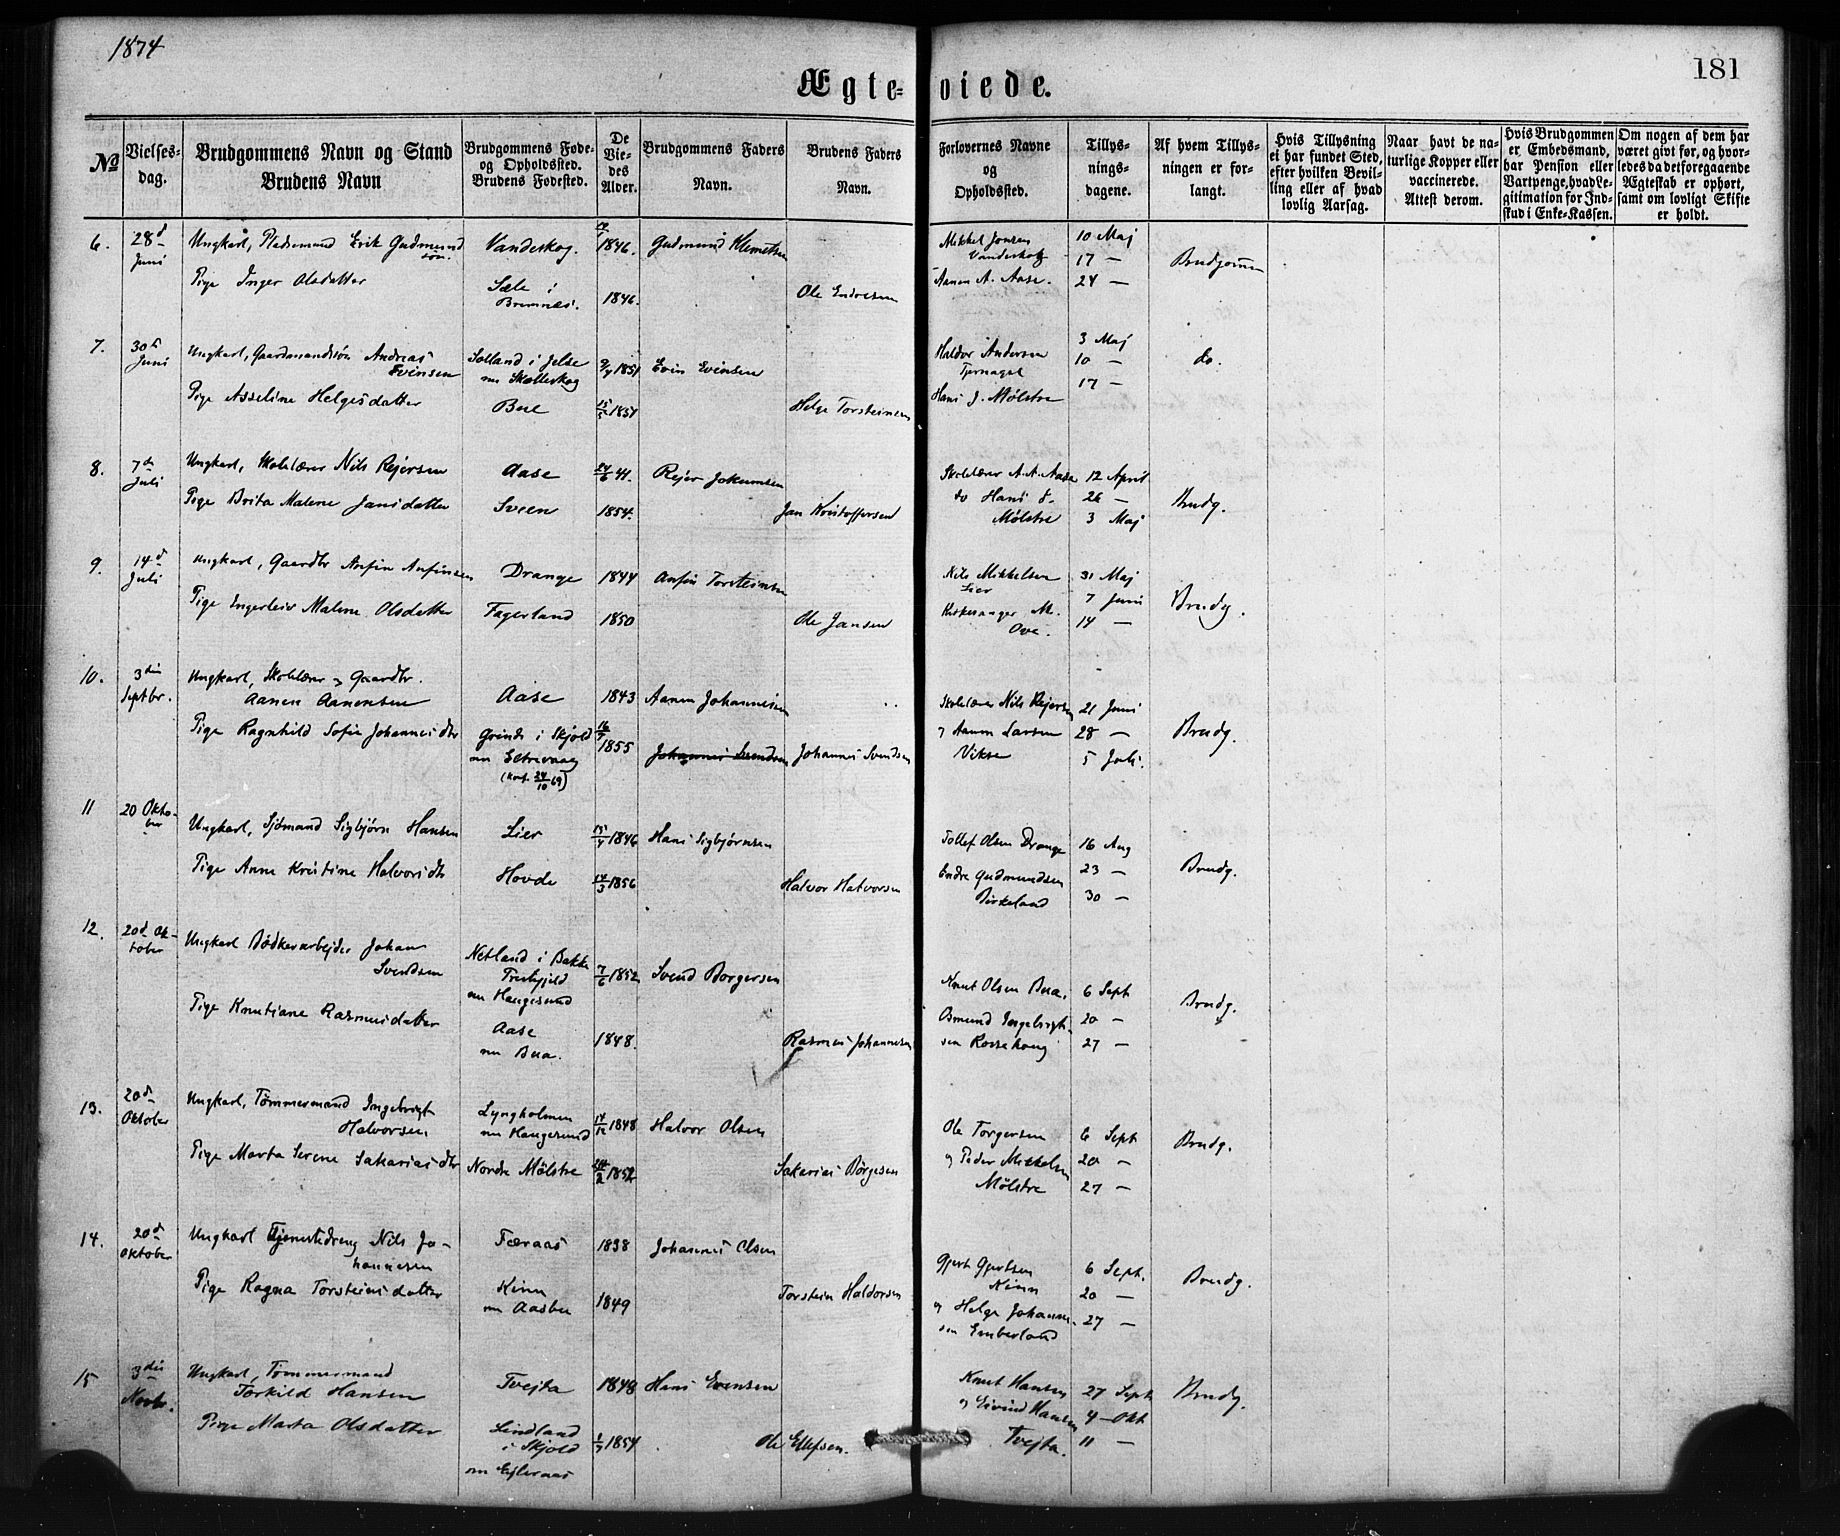 1874
181
Ægte-viede.
No
Vielses-dag.
Brudgommens Navn og Stand
Brudens Navn
Brudgommens Føde- og Opholdssted.
Brudens Fødested.
De Viedes Alder.
Brudgommens Faders Navn.
Brudens Faders Navn.
Forlovernes Navne og Opholdssted.
Tillys-nings-dagene.
Af hvem Tillys-ningen er for-langt.
Hvis Tillysning ei har fundet Sted, efter hvilken Bevil-ling eller af hvad lovlig Aarsag.
Naar havt de na-turlige Kopper eller vaccinerede. Attest derom.
Hvis Brudgommen er Embedsmand, har Pension eller Vartpenge, hvad Le-gitimation for Ind-skud i Enke-Kassen.
Om nogen af dem har været givt før, og hvor-ledes da det foregaaende Ægteskab er ophørt, samt om lovligt Skifte er holdt.
6. 28d Juni
Ungkarl, Pladsmand Erik Gudmundson. Vandeskog. 1846. Gudmund Klemetsen
Pige Inger Olsdatter Sæle i Bremnes. 1846. Ole Endresen
Mikkel Jonsen Vandeskog 10 Maj
Aanen A. Aase. 17 —
24 — Brudgommen
7. 30te Juni
Ungkarl, Gaardmandssøn Andreas Evinsen Solland i Jelse nu Skolleskog 9/4 1851 Evin Evinsen
Pige Asseline Helgesdatter Bue 15/5 1851 Helge Torsteinsen
Haldor Andersen Tjernagel 3 Maj
10 — do.
Hans J. Mølstre 17 —
8. 7de Juli
Ungkarl, Skolelærer Nils Rejersen Aase 24/6 41. Rejer Jokumsen
Pige Brita Malene Jansdatter Sveen 1854. Jan Kristoffersen
Skolelærer A. A. Aase 12 April
do Hans J. Mølstre 26 —
3 Maj Brudg.
9. 14d Juli
Ungkarl, Gaardbr Anfin Anfinsen Drange 1844 Anfin Torsteinsen
Pige Engerleiv Malene Olsdatter Fagerland 1850 Ole Jansen
Nils Mikkelsen Lier 31 Maj
7 Juni Brudg.
Kirkesanger M. Ove. 14 —
10. 3die Septbr.
Ungkarl, Skolelærer og Gaardbr. Aanen Aanensen Aase 1843 Aanen Johannesen
Pige Ragnhild Sofie Johannesdtr Grinde i Skjold nu Eltravaag (Konf. 24/10 69) 16/7 1855 Johannes Svendsen Johannes Svendsen
Skolelærer Nils Rejersen 21 Juni
og Aanen Larsen 28 — Brudg.
Vikse 5 Juli.
11 20 Oktober
Ungkarl, Sjømand Sigbjørn Hansen Lier 15/4 1846 Hans Sigbjørnsen
Pige Anne Kristine Halvorsdtr Hovde 14/3 1856 Halvor Halvorsen
Tollef Olsen Drange 16 Aug
Endre Gudmundsen 23 — Brudg.
Birkeland 30 —
12. 20d Oktober
Ungkarl Bødkerarbejder Johan Svendsen Netland i Bakke Prestgjeld nu Haugesund 7/6 1852 Svend Borgersen
Pige Knutiane Rasmusdatter Aase nu Bua. 1848. Rasmus Johannesen
Knut Olsen Bua. 6 Sept
Osmund Ingebrigt- 20 — Brudg.
sen Rossehaug 27 —
13. 20d Oktober
Ungkarl, Tømmermand Ingebrigt Halvorsen Lyngholmen nu Haugesund 17/12 1848 Halvor Olsen
Pige Marta Serene Sakariasdtr Nordre Mølstre 24/2 1852 Sakarias Børgesen
Ole Torgersen 6 Sept
og Peder Mikkelsen 20 — Brudg.
Mølstre 27 —
14. 20d Oktober
Ungkarl Tjenestedreng Nils Johannesen Færaas 1838 Johannes Olsen
Pige Ragna Torsteinsdatter Kinn nu Aasbu 1849 Torstein Haldorsen
Gjert Gjertsen Kinn 6 Sept.
20 — Brudg.
og Helge Johannesen Emberland 27 —
15 3die Novbr.
Ungkarl, Tømmermand Torkild Hansen Tvejta 1848 Hans Evensen
Pige Marta Olsdatter Lindland i Skjold 1/7 1854 Ole Ellefsen.
Knut Hansen 27 Sept
og Eivind Hansen 4 — Okt Brudg.
Tvejta. 11 —